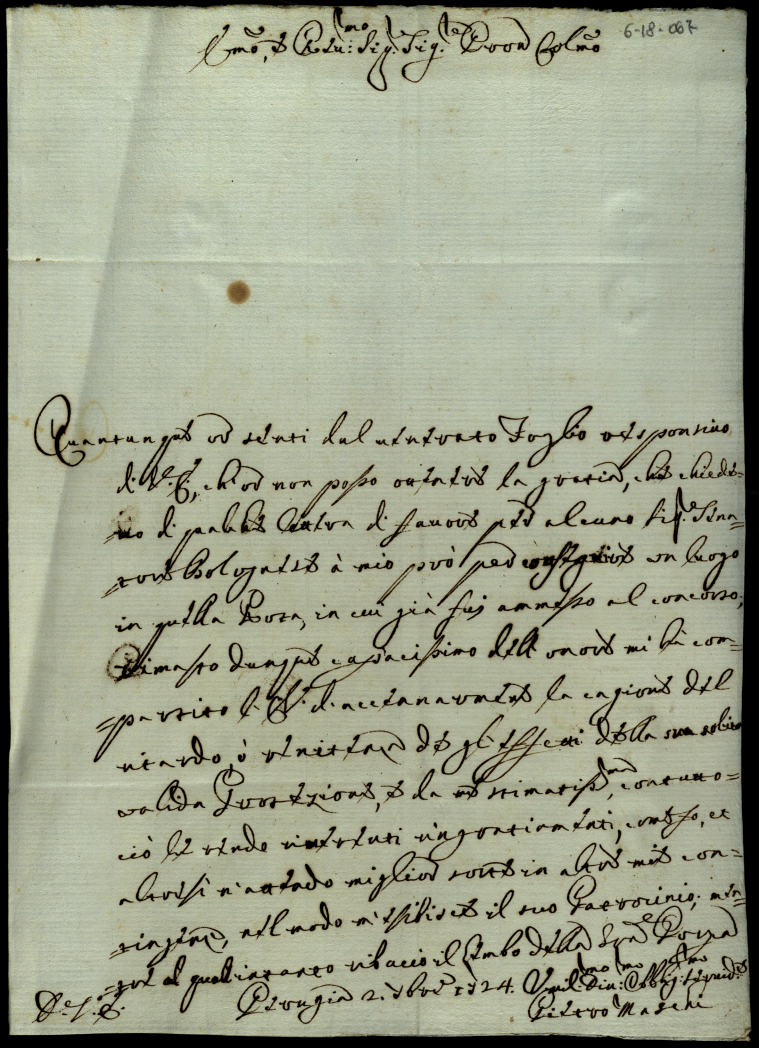 6-18-067
Emo, e Rmo: Sig: Sig:re Pron Colmo
Quantunque or senti dal venerato Foglio responsivo
di V. E., che or non posso ottener la grazia, che chiede-
=vo di palese lettera di favore per alcuno Sig.r Sena-
=tore Bolognese à mio prò per conseguire un luogo
in quella Rota, in cui già fui ammesso al concorso;
rimasto dunque capacissimo dell' onore mi hà com-
=partito l' E. V. di accennarmene la cagione del
ritardo, ò renitenza de gl' effetti della sua solita
valida Protezione, e da me stimatiss:ma, contutto=
ciò le rendo riverenti ringraziamenti, come fo, et
altresì n' attendo miglior sorte in altre mie con-
tingenze, nel modo m' esibisce il suo Patrocinio; men-
=tre al qual intanto ribacio il Lembo della Sag:ra Porpora
Di V. E.
Perugia 2. 7bre 1724.
Umil:mo Div:mo Obblig:mo Servid.e
Pietro Maschi